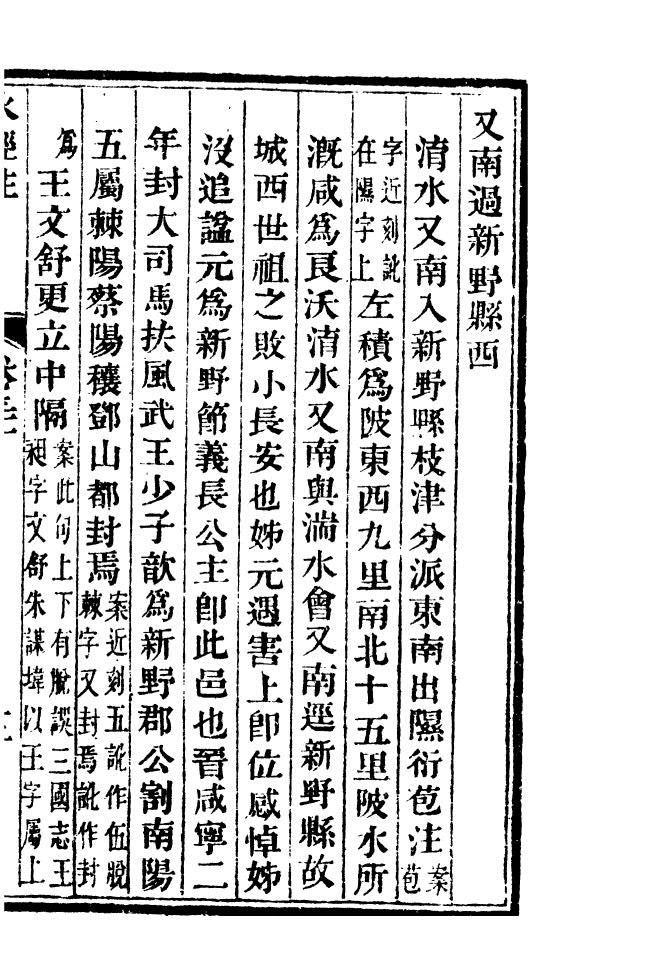 又南過新野縣西
淯水又南入新野縣枝津分派東南出隰衍苞注案苞
字近刻訛在隰字上左積爲陂東西九里南北十五里陂水所
溉咸爲良沃淯水又南與湍水會又南逕新野縣故
城西世祖之敗小長安也姊元遇害上卽位感悼姊
沒追諡元爲新野節義長公主卽此邑也晉咸寧二
年封大司馬扶風武王少子歆爲新野郡公割南陽
五屬棘陽蔡陽穰鄧山都封焉案近刻五訛作伍脫棘字又封焉訛作封
爲王文舒更立中隔案此句上下有脫誤三國志王昶字文舒朱謀㙔以王字屬上
水經注